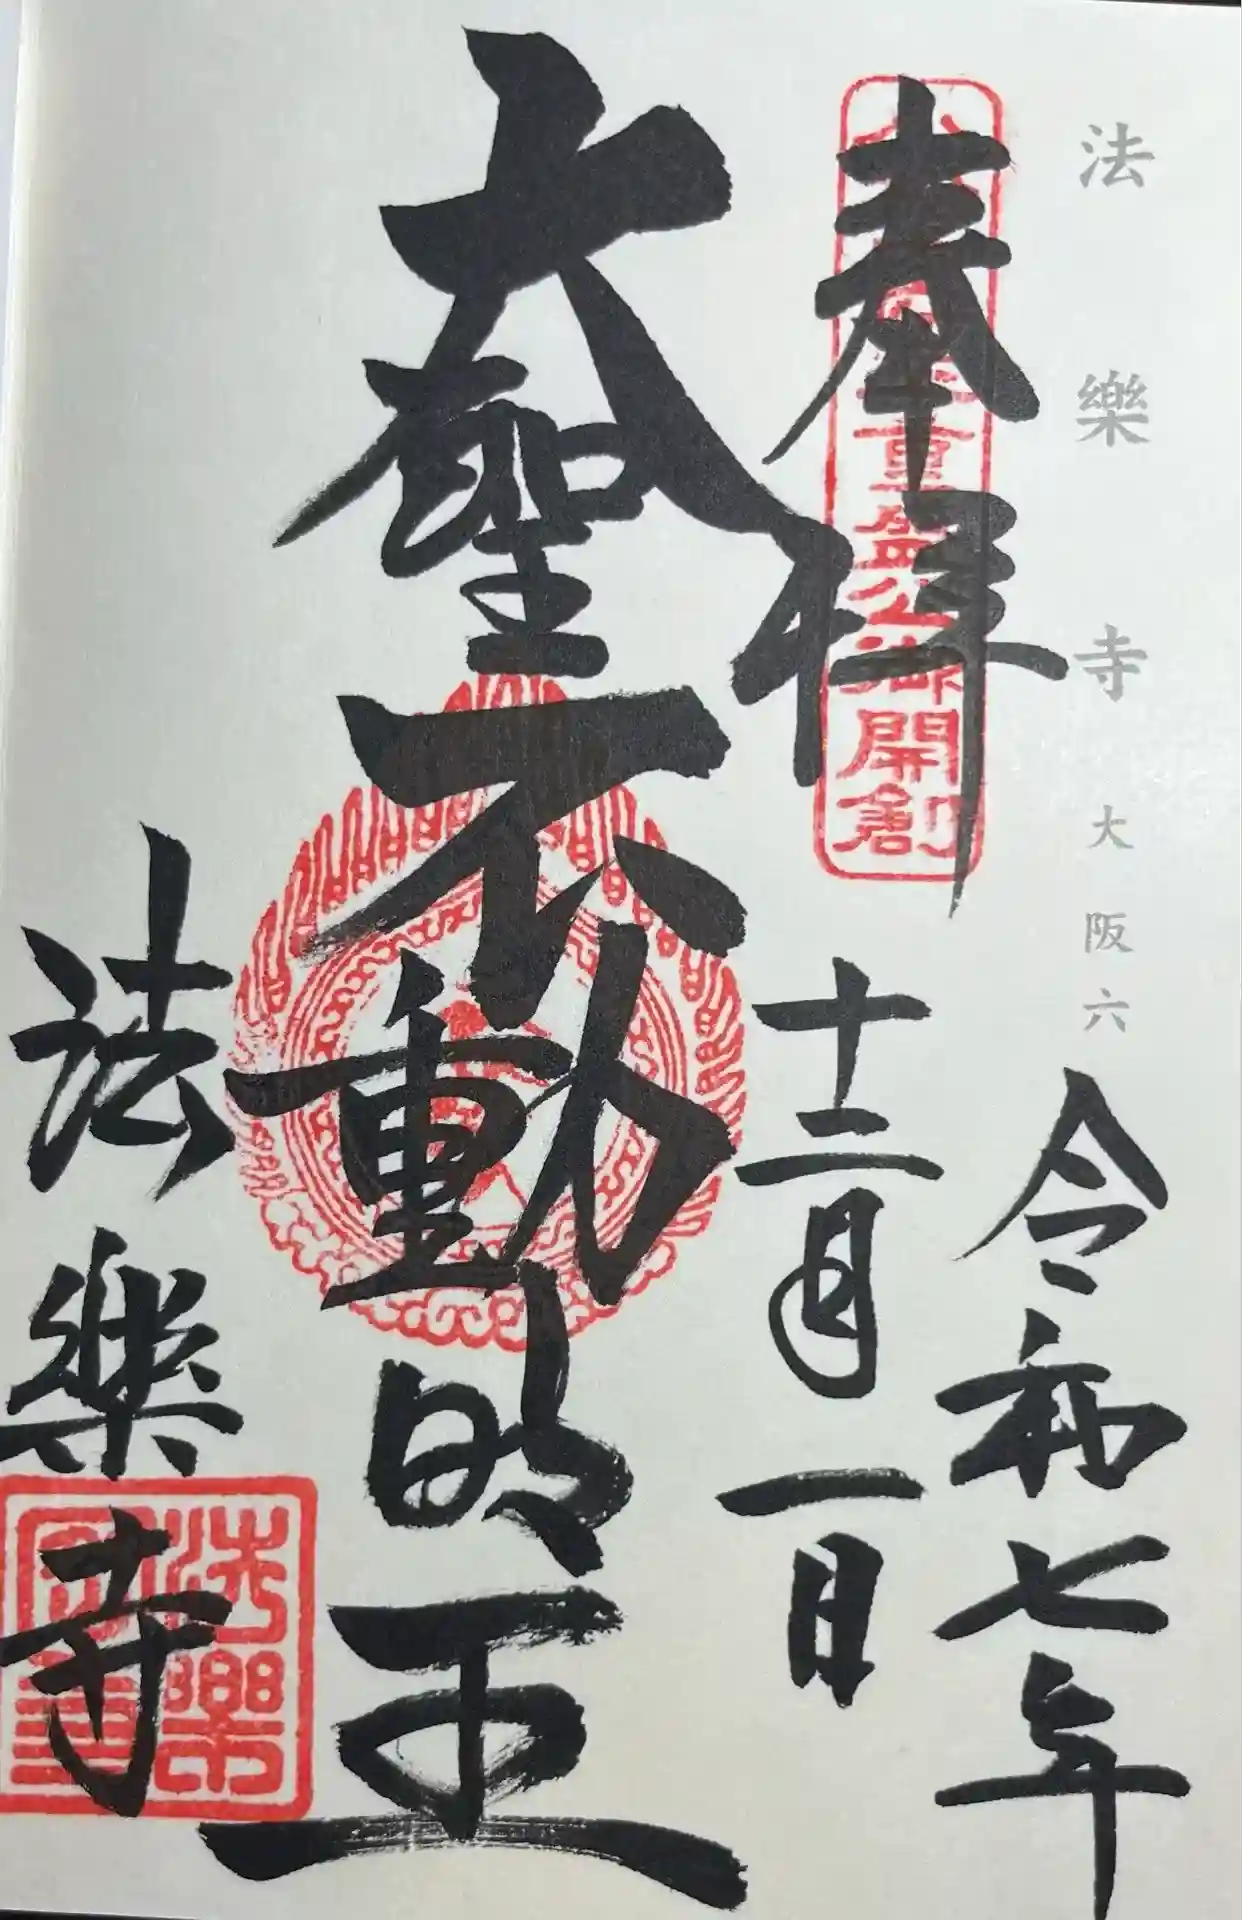 法樂寺 大阪六
奉拝
重盛公御開創
令和七年
十二月一日
大聖不動明王
法樂寺
法樂